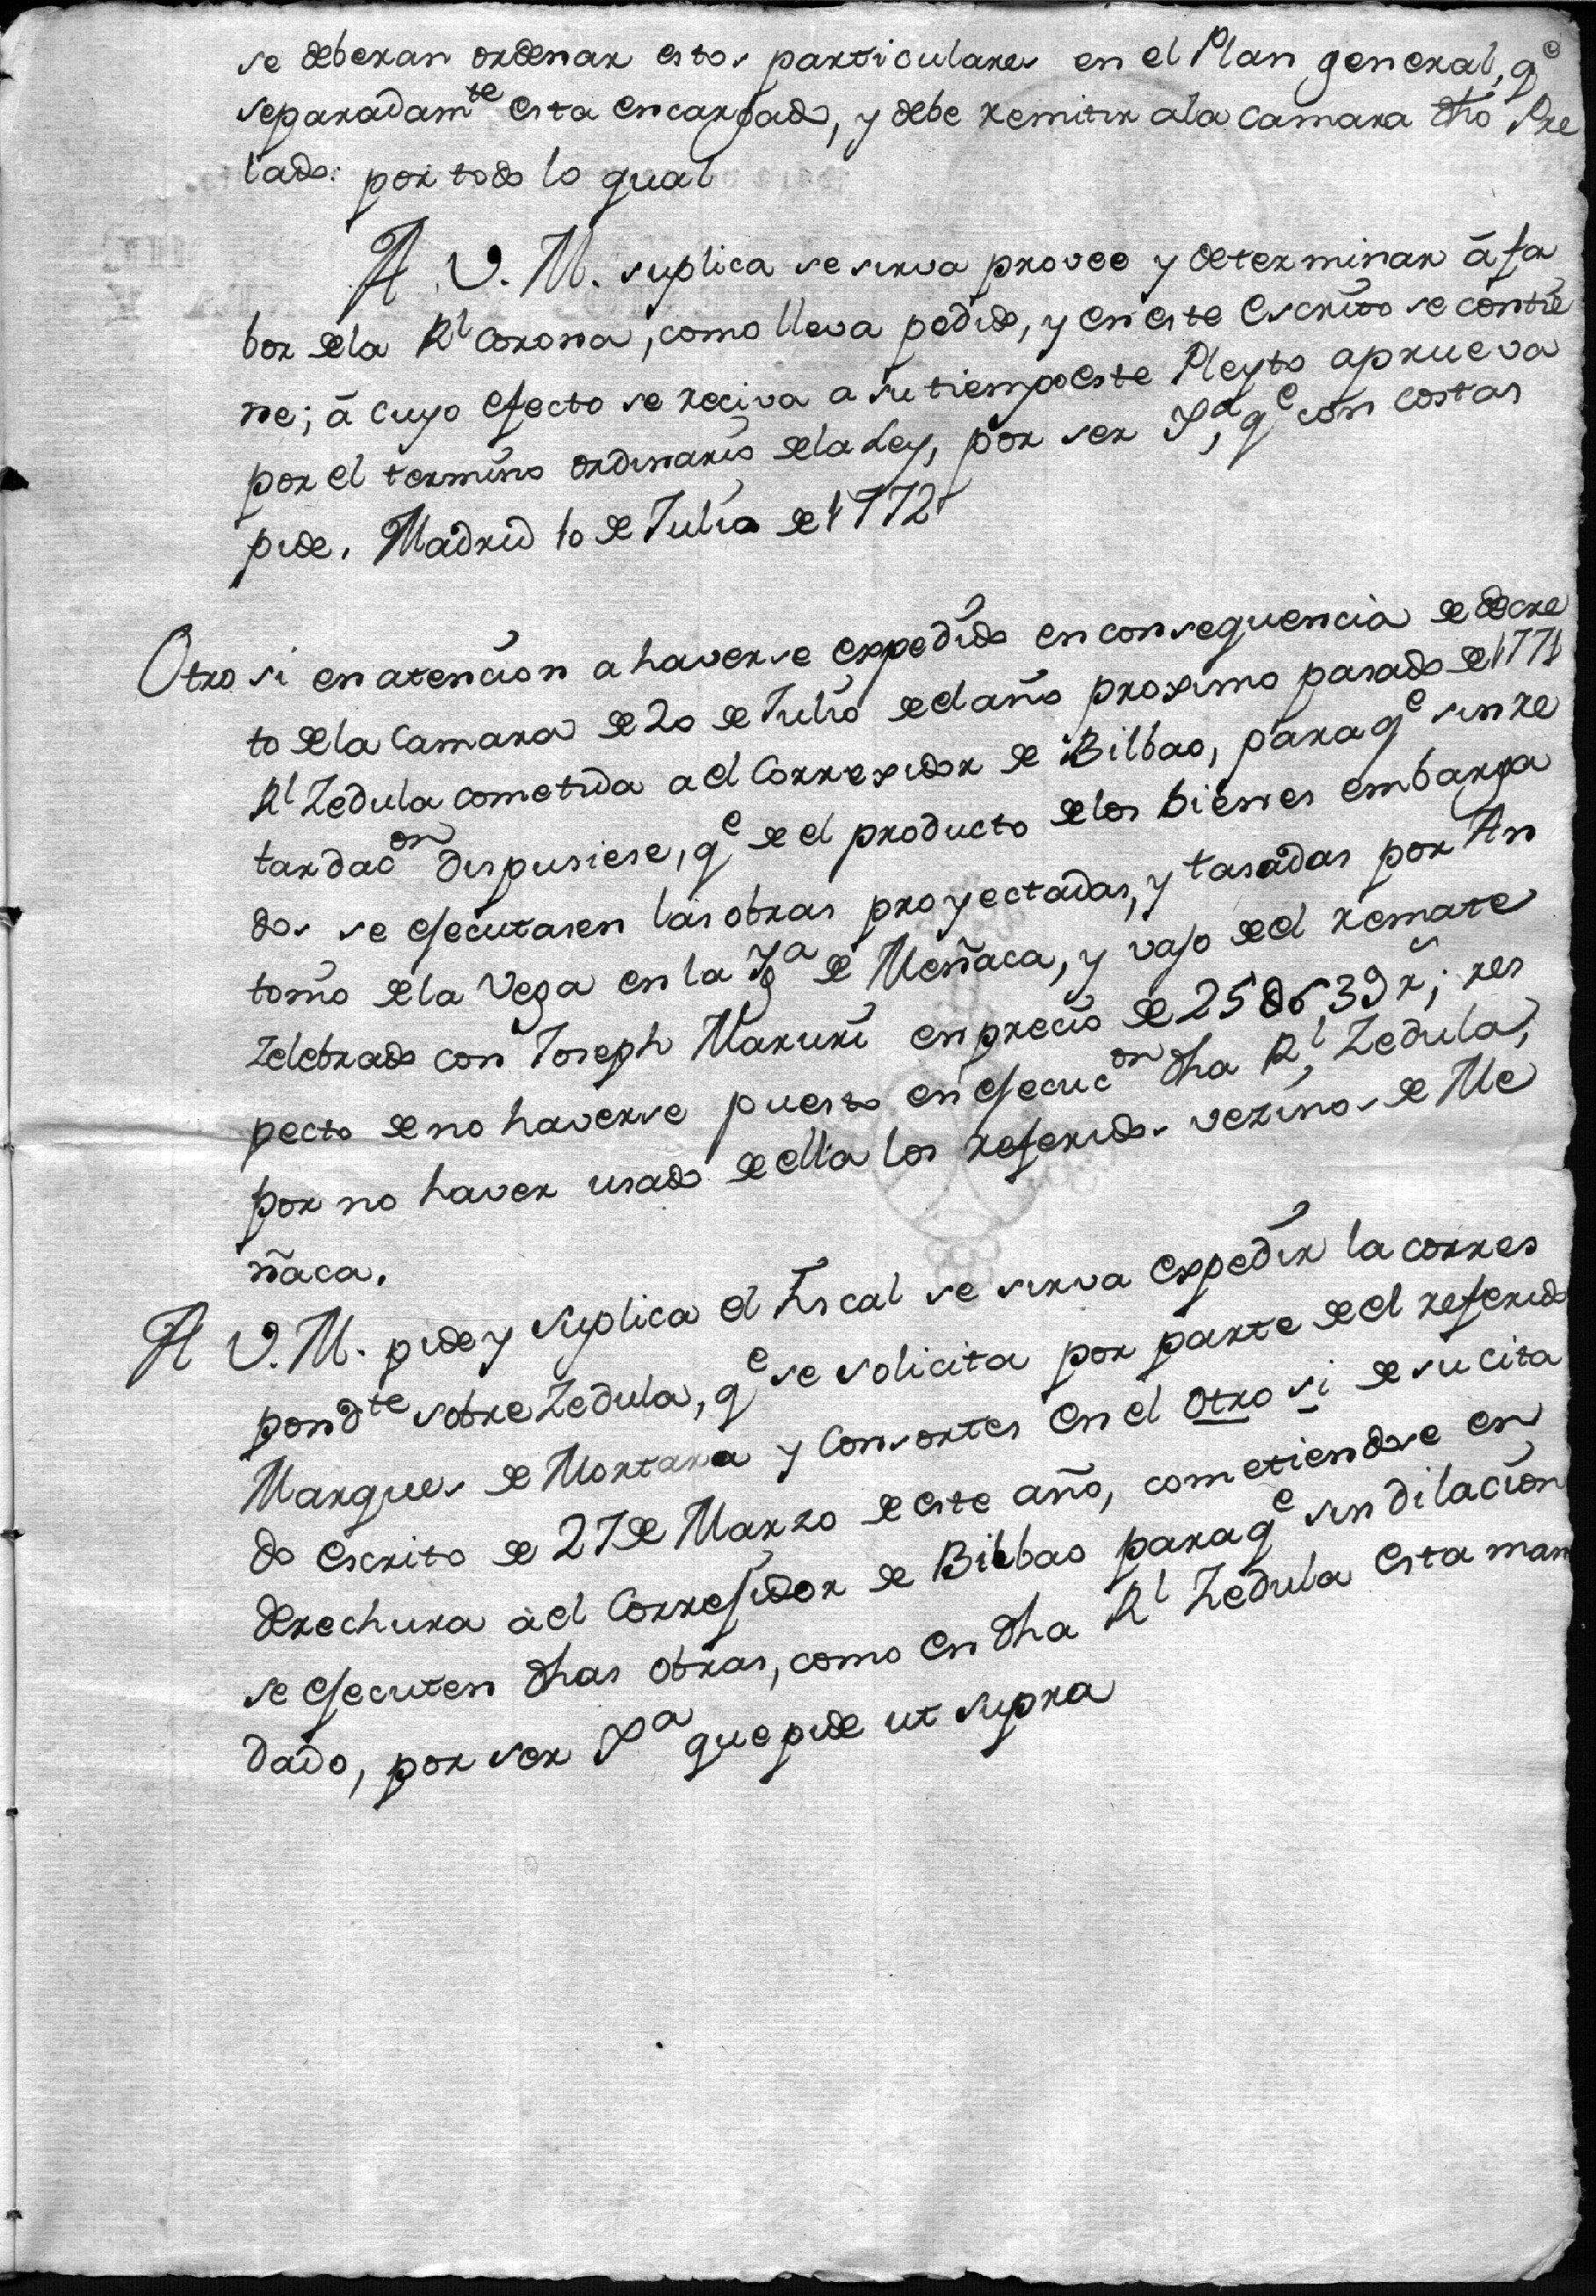 se deberan ordenar estos particulares en el Plan general, q.e
separadam.te esta encargado, y debe remitir ala Camara dho Pre
lado: por todo lo qual
A V. M. suplica se sirva provee y determinar á fa
bor dela R.l Corona, como lleva pedido, y en este Escrito se contie
ne; á cuyo efecto se reciva a su tiempo este Pleyto aprueva
por el termino ordinario dela Ley, por ser Jª, q.e con costas
pide. Madrid 10 de Julio de 1772
Otro si en atencion a haverse expedido en consequencia de decre
to dela Camara de 20 de Julio de el año proximo pasado de 1771
R.l Zedula cometida a el Corregidor de Bilbao, para q.e sin re
tardac.on dispusiese, q.e de el producto delos bienes embarga
dos se ejecutasen las obras proyectadas, y tasadas por An
tonio dela Vega en la Yg.a de Meñaca, y vajo de el remate
zelebrado con Joseph Maruri en precio de 25 639 r.s; res
pecto de no haverse puesto en ejecuc.on dha R.l Zedula,
por no haver usado de ella los referidos vezinos de Me
ñaca.
A V. M. pide y suplica el Fiscal se sirva expedir la corres
pond.te sobre Zedula, q.e se solicita por parte de el referido
Marques de Mortara y Consortes en el otro si de su cita
do escrito de 27 de Marzo de este año, cometiendose en
derechura á el Corregidor de Bilbao para q.e sin dilacion
se ejecuten dhas obras, como en dha R.l Zedula esta man
dado, por ser Jª que pide ut supra